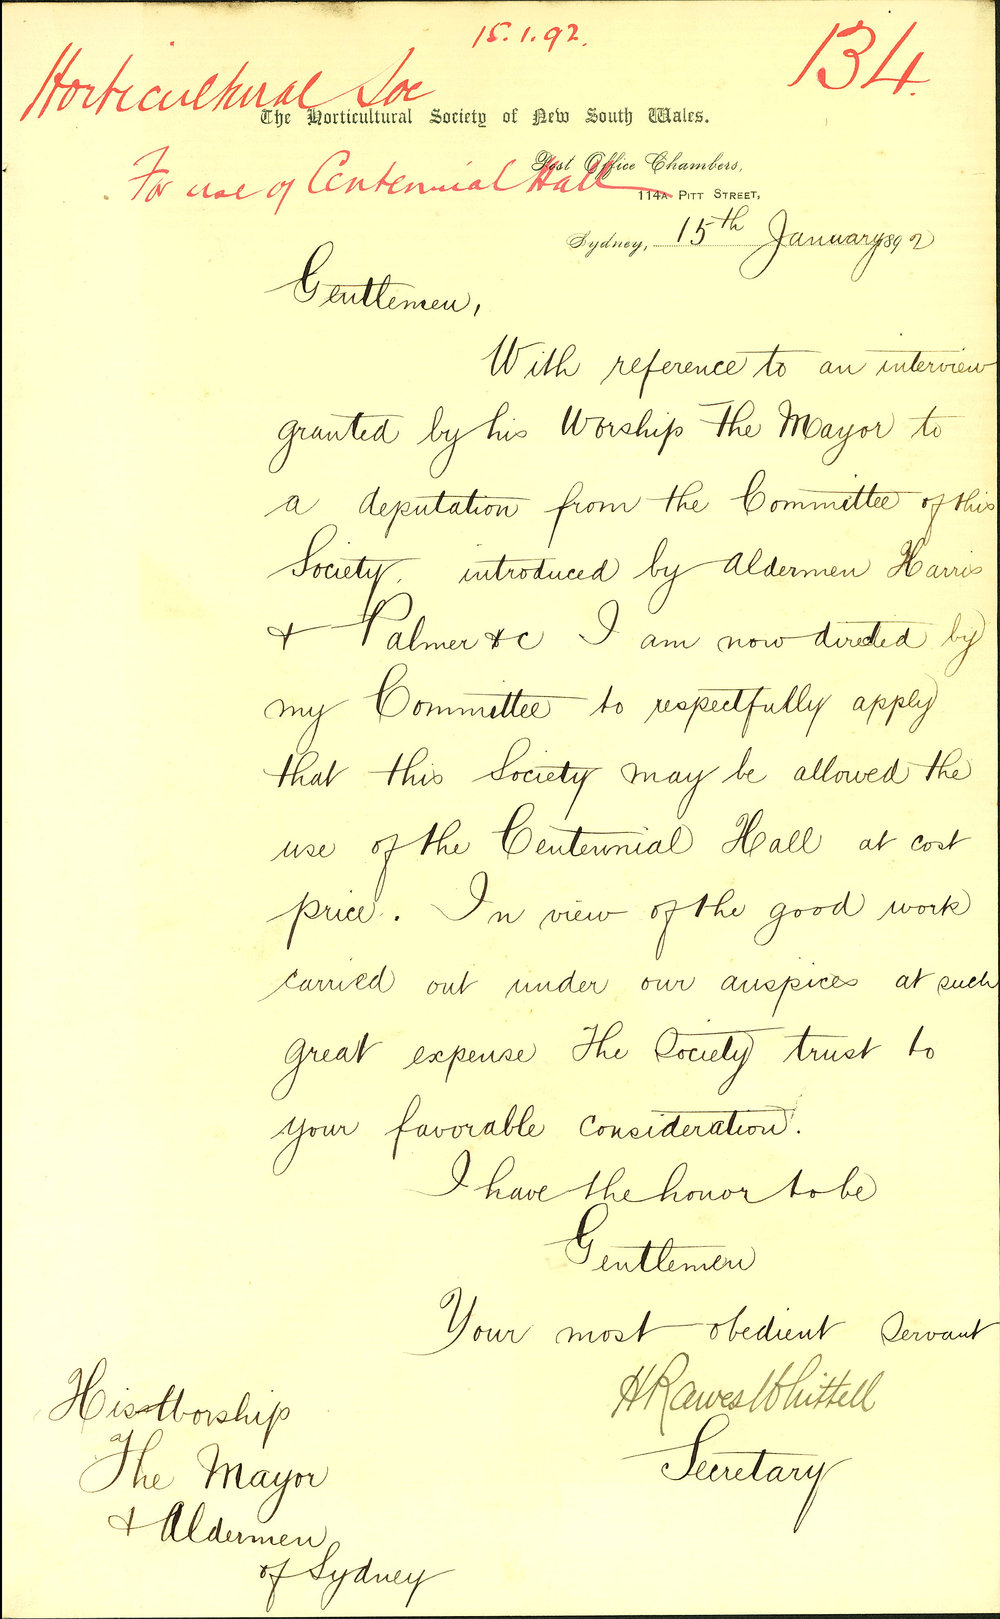 15.1.92.
134.
Horticultural Soc
The Horticultural Society of New South Wales.
For use of Centennial Hall
Post Office Chambers,
114A PITT STREET,
Sydney, 15th January 1892
Gentlemen,
With reference to an interview
granted by his Worship The Mayor to
a deputation from the Committee of this
Society, introduced by Aldermen Harris
& Palmer &c I am now directed by
my Committee to respectfully apply
that this Society may be allowed the
use of the Centennial Hall at cost
price. In view of the good work
carried out under our auspices at such
great expense The Society trust to
your favorable consideration.
I have the honor to be
Gentlemen
Your most obedient Servant
H Rawes Whittell
Secretary
His Worship
The Mayor
& Aldermen
of Sydney